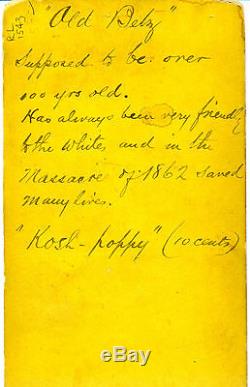 RL
1543
"Old Betz"
Supposed to be over
100 yrs old.
Has always been very friendly
to the whites, and in the
Massacre of 1862 saved
many lives.
"Kosh-poppy" (10 cents)